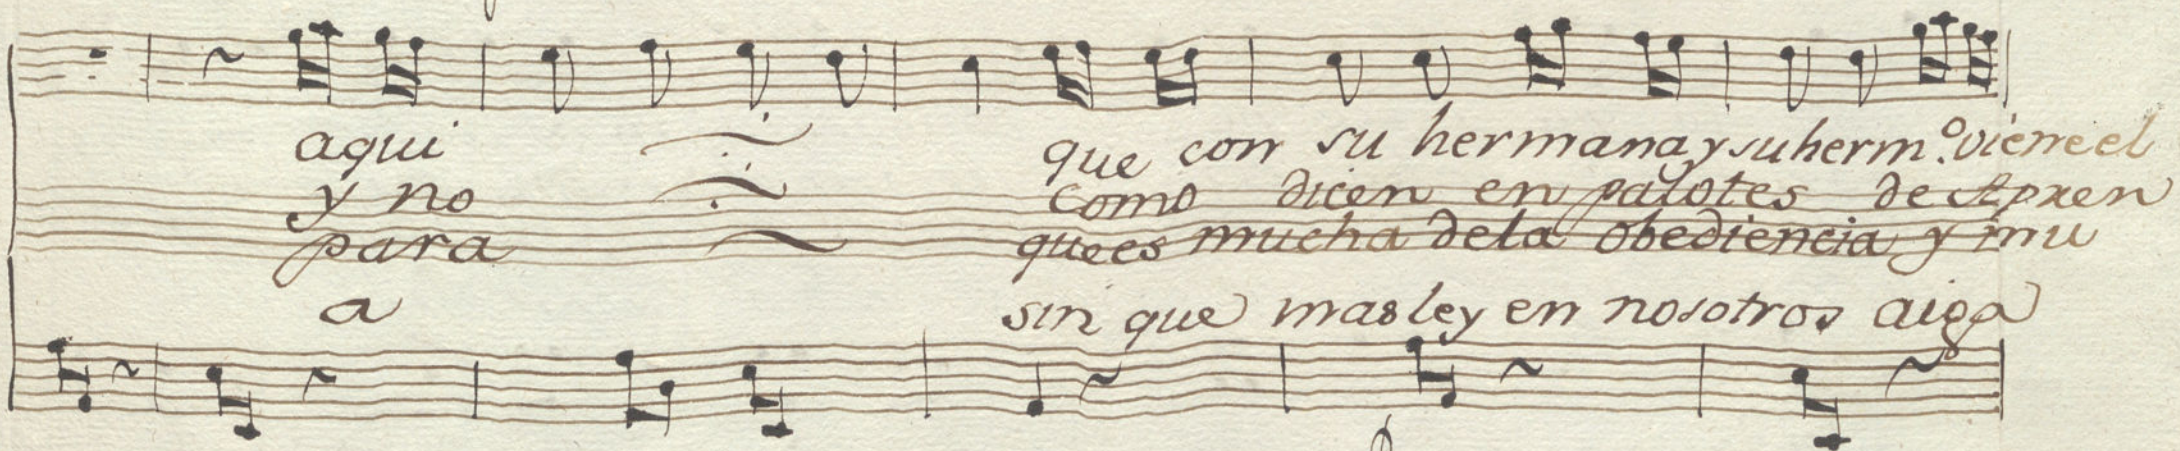 aqui que con su hermana y su herm.º viene el
y no como dicen en palotes de Apren
para que es mucha dela obediencia y mu
a sin que mas ley en nosotros aiga